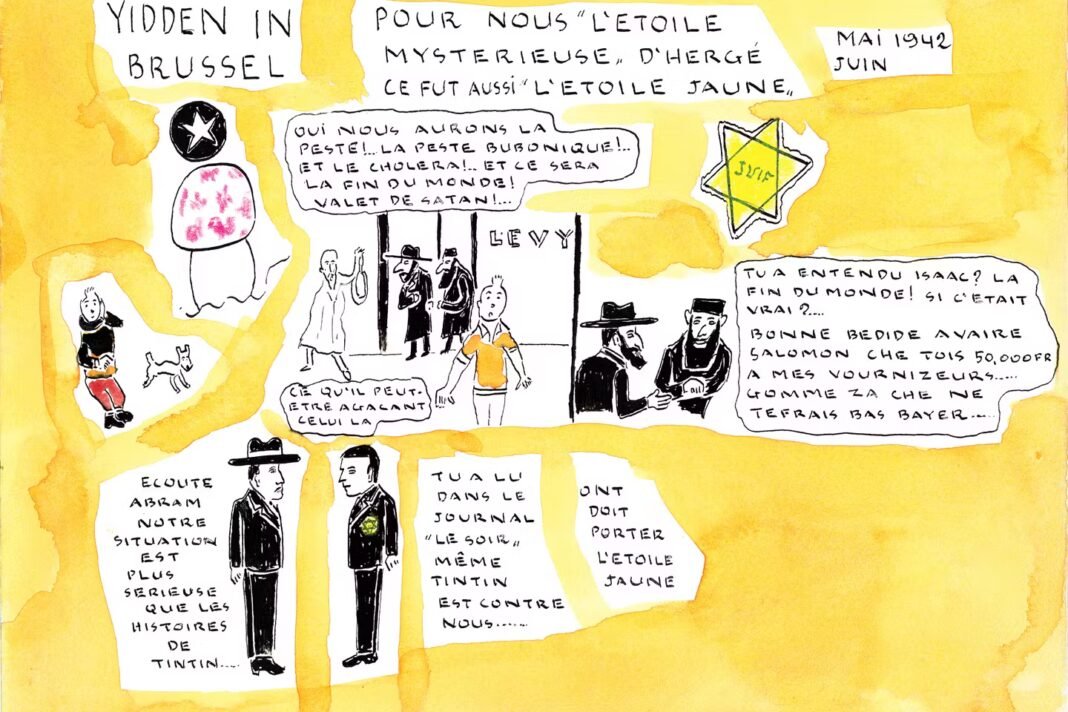 YIDDEN IN
BRUSSEL
POUR NOUS "L'ETOILE
MYSTERIEUSE„ D'HERGÉ
CE FUT AUSSI "L'ETOILE JAUNE„
MAI 1942
JUIN
OUI NOUS AURONS LA
PESTE!.. LA PESTE BUBONIQUE!..
ET LE CHOLERA!.. ET CE SERA
LA FIN DU MONDE!
VALET DE SATAN!...
JUIF
LEVY
CE QU'IL PEUT-
ETRE AGAÇANT
CELUI LA
TU A ENTENDU ISAAC? LA
FIN DU MONDE! SI C'ETAIT
VRAI?....
BONNE BEDIDE AVAIRE
SALOMON CHE TOIS 50,000FR
A MES VOURNIZEURS.....
GOMME ZA CHE NE
TEFRAIS BAS BAYER.....
ECOUTE
ABRAM
NOTRE
SITUATION
EST
PLUS
SERIEUSE
QUE LES
HISTOIRES
DE
TINTIN....
TU A LU
DANS LE
JOURNAL
"LE SOIR„
MÊME
TINTIN
EST CONTRE
NOUS.....
ONT
DOIT
PORTER
L'ETOILE
JAUNE